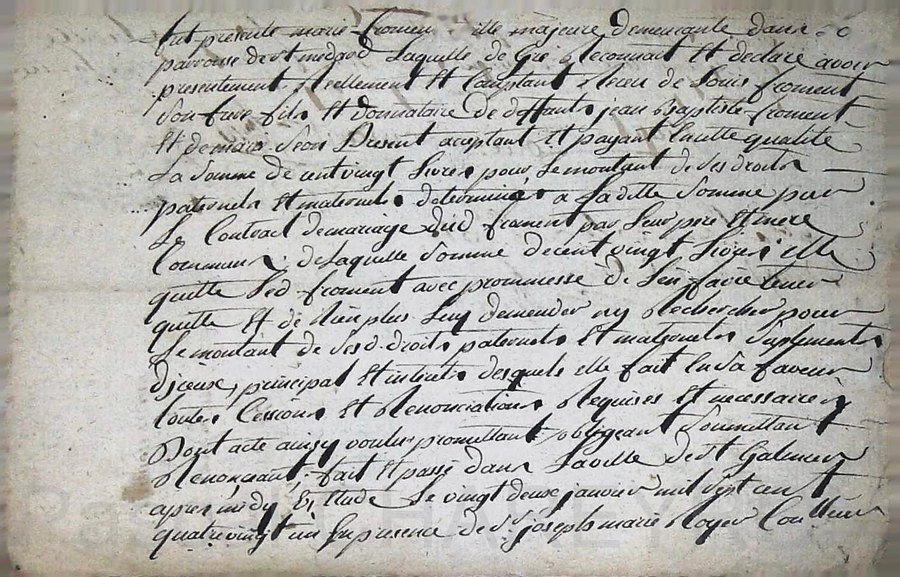 fut presente marie froment fille majeure demeurante dans la
parroisse de st medard Laquelle de Gré a Reconnut Et declaré avoir
presentement Reellement Et Comptant Receu de Louis froment
Son frere fils Et donnataire de deffunts jean Baptiste froment
Et de marie Present acceptant Et payant en cette qualité
La Somme de cent vingt Livres pour Le montant de Ses droits
paternels Et maternels determinés a Laditte Somme par
Le Contract de mariage dud froment par Leur pere Et mere
Communs. de Laquelle Somme de cent vingt Livres elle
quitte Led froment avec prommesse de L'en faire tenir
quitte Et de Rien plus Luy demender ny Rechercher pour
Le montant de Ses d. droits paternels Et maternels Suplements
D'jceux, principal Et interets desquels elle fait en Sa faveur
toutes Cessions Et Renonciations Requises Et necessaires
Dont acte ainsy voulu promettant obligeant Soumettant
Renonçant, fait Et passé dans La ville de St Galmier
apres midy Et Etude Le vingt deux janvier mil Sept cent
quatre vingt un En presence de Sr joseph marie Roger